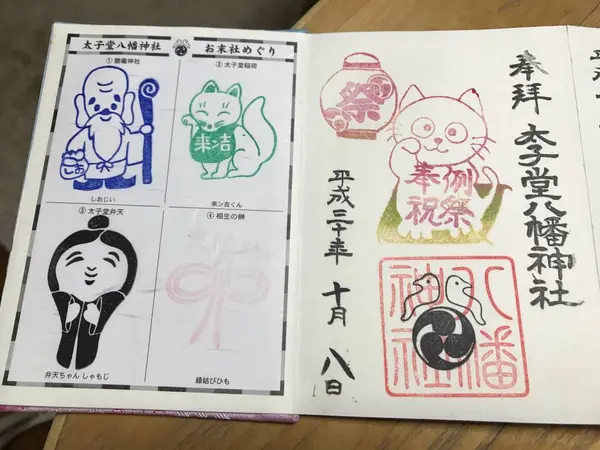 太子堂八幡神社 お末社めぐり
① 鹽竈神社
しおじい
② 太子堂稲荷
来ン吉
来ン吉くん
③ 太子堂弁天
弁天ちゃん しゃもじ
④ 相生の榊
縁結びひも
奉拝 太子堂八幡神社
祭
奉祝
例祭
八幡神社
平成三十年 十月 八日
平